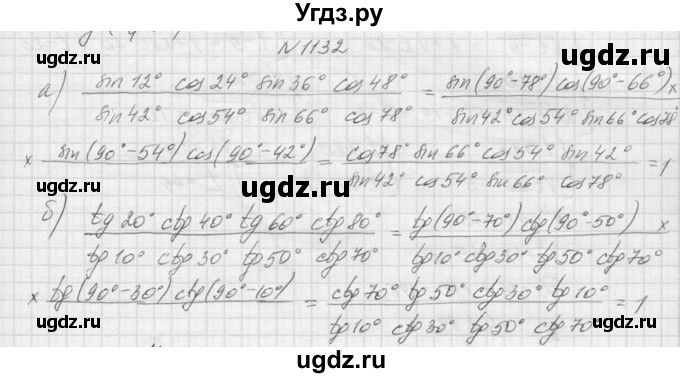 Угдз.ру
N 1132
а) sin 12° cos 24° sin 36° cos 48° / sin 42° cos 54° sin 66° cos 78° = sin(90°-78°) cos(90°-66°) × / sin 42° cos 54° sin 66° cos 78°
× sin(90°-54°) cos(90°-42°) = cos 78° sin 66° cos 54° sin 42° / sin 42° cos 54° sin 66° cos 78° = 1
б) tg 20° ctg 40° tg 60° ctg 80° / tg 10° ctg 30° tg 50° ctg 70° = tg(90°-70°) ctg(90°-50°) × / tg 10° ctg 30° tg 50° ctg 70°
× tg(90°-30°) ctg(90°-10°) = ctg 70° tg 50° ctg 30° tg 10° / tg 10° ctg 30° tg 50° ctg 70° = 1
ugdz.ru ugdz.ru
ugdz.ru ugdz.ru
ugdz.ru ugdz.ru
ugdz.ru ugdz.ru
ugdz.ru